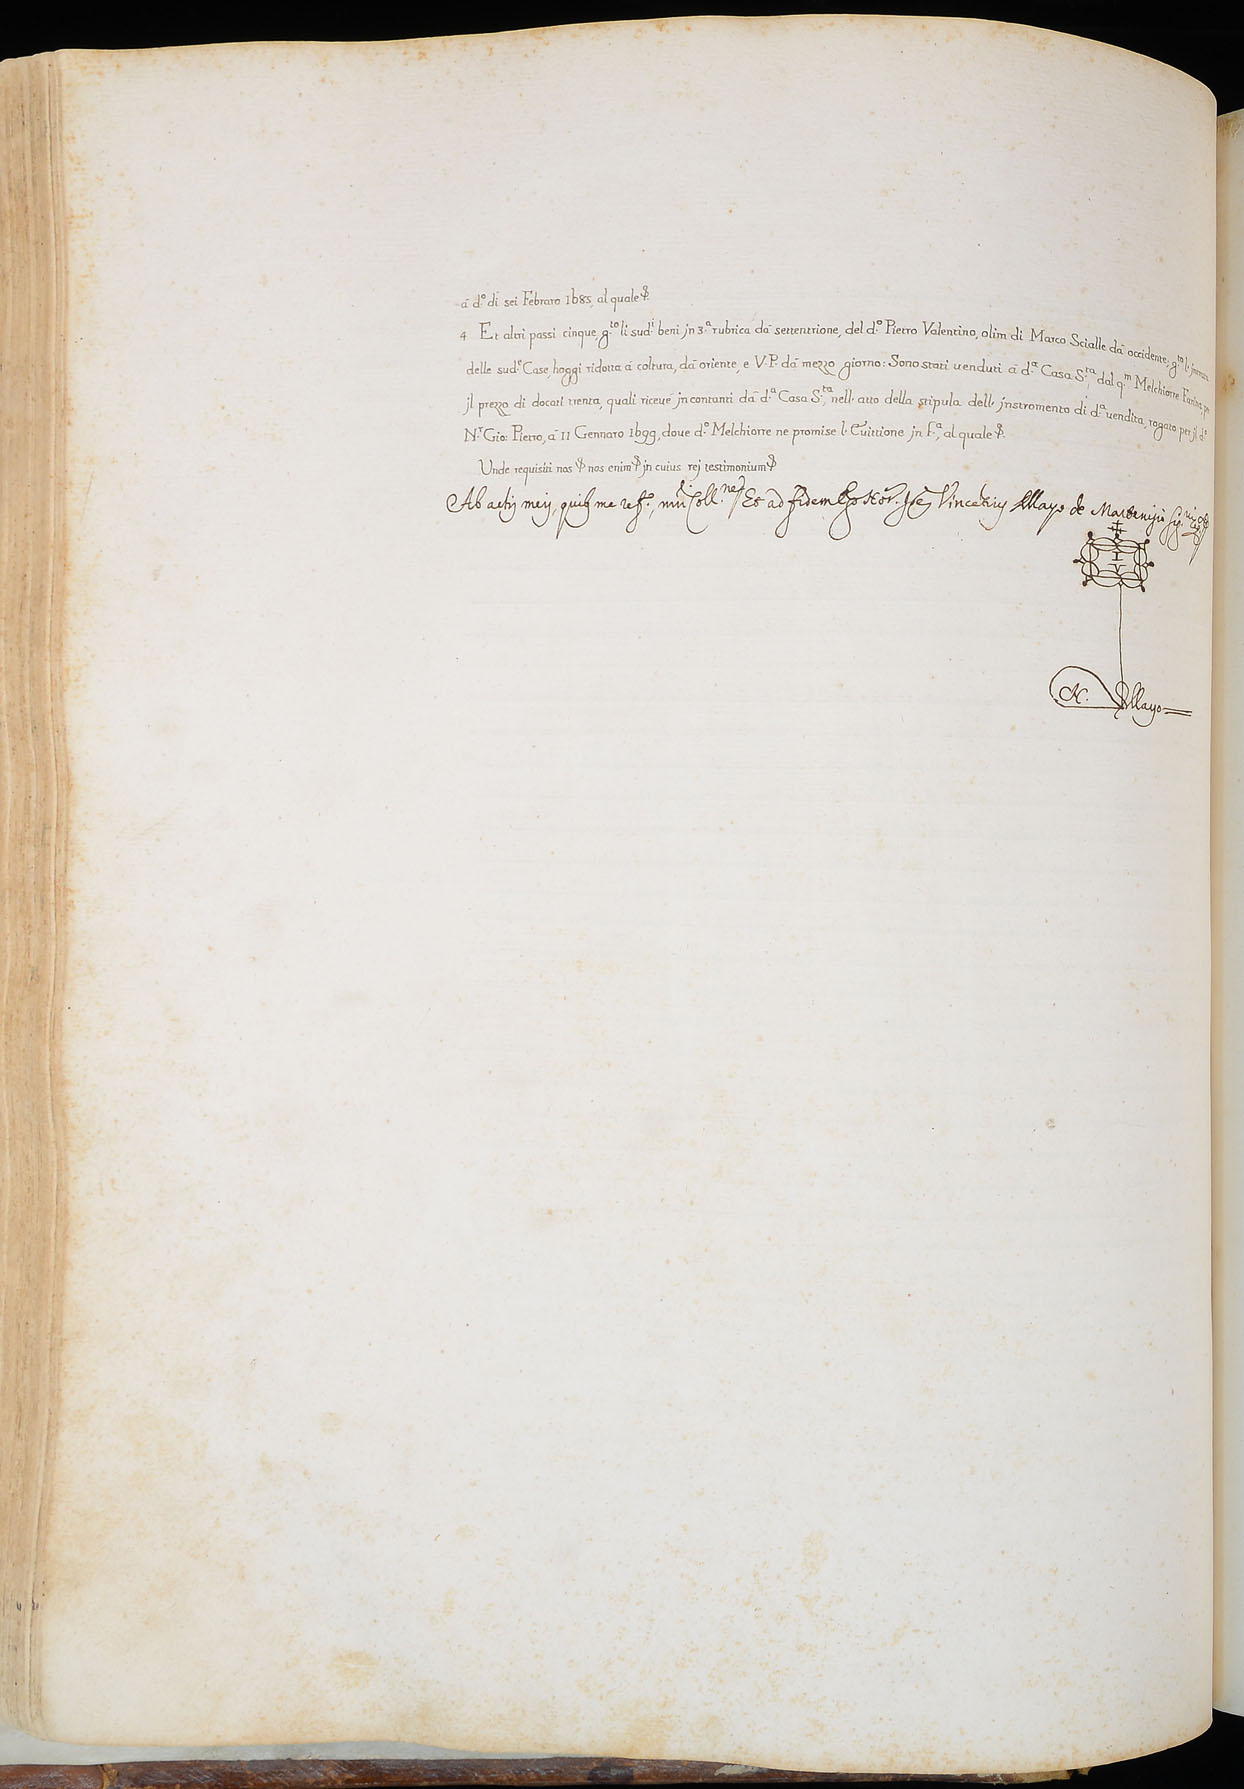 á d.º di sei Febraro 1685, al quale
4 Et altri passi cinque, g.to li sud.i beni jn 3.ª rubrica dá settentrione, del d.º Pietro Valentino, olim di Marco Scialle dá occidente, g.to l'
delle sud.e Case, hoggi ridotta á coltura, dá oriente, e V.P. dá mezzo giorno: Sono stati uenduti á d.ª Casa S.ta, dal q.m Melchiorre Farina, per
jl prezzo di docati trenta, quali riceué jn contanti dá d.ª Casa S.ta, nell'atto della stipula dell'jnstromento di d.ª uendita, rogato per jl d.º
N.r Gio: Pietro, á 11 Gennaro 1699, doue d.º Melchiorre ne promise l'Euittione jn f.ª, al quale
Unde requisiti nos nos enim jn cuius rej testimonium
Ab actis meis, quibus me Et ad fidem Ego Not. Vincentius Mayo de Martenisio
I V
N. Mayo